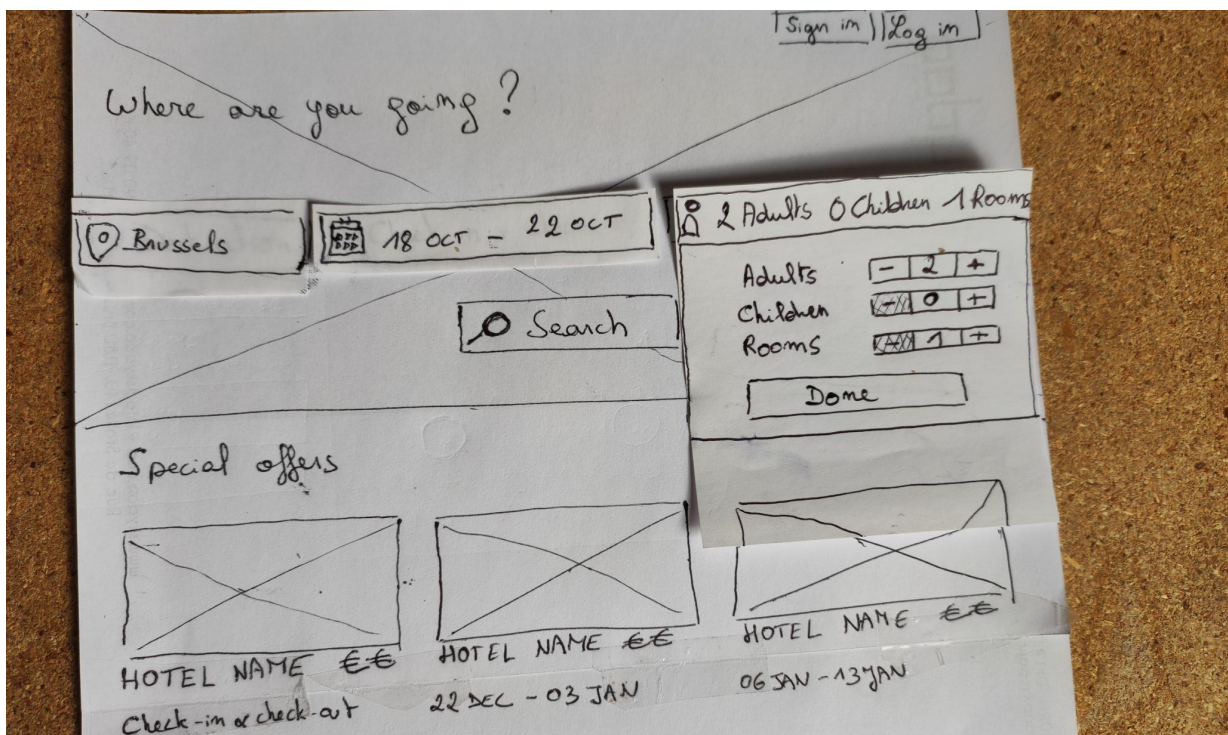 Sign in Log in
Where are you going?
Brussels
18 OCT - 22 OCT
2 Adults 0 Children 1 Rooms
Adults - 2 +
Children - 0 +
Rooms - 1 +
Done
Search
Special offers
HOTEL NAME €€
Check-in & check-out
HOTEL NAME €€
22 DEC - 03 JAN
HOTEL NAME €€
06 JAN - 13 JAN